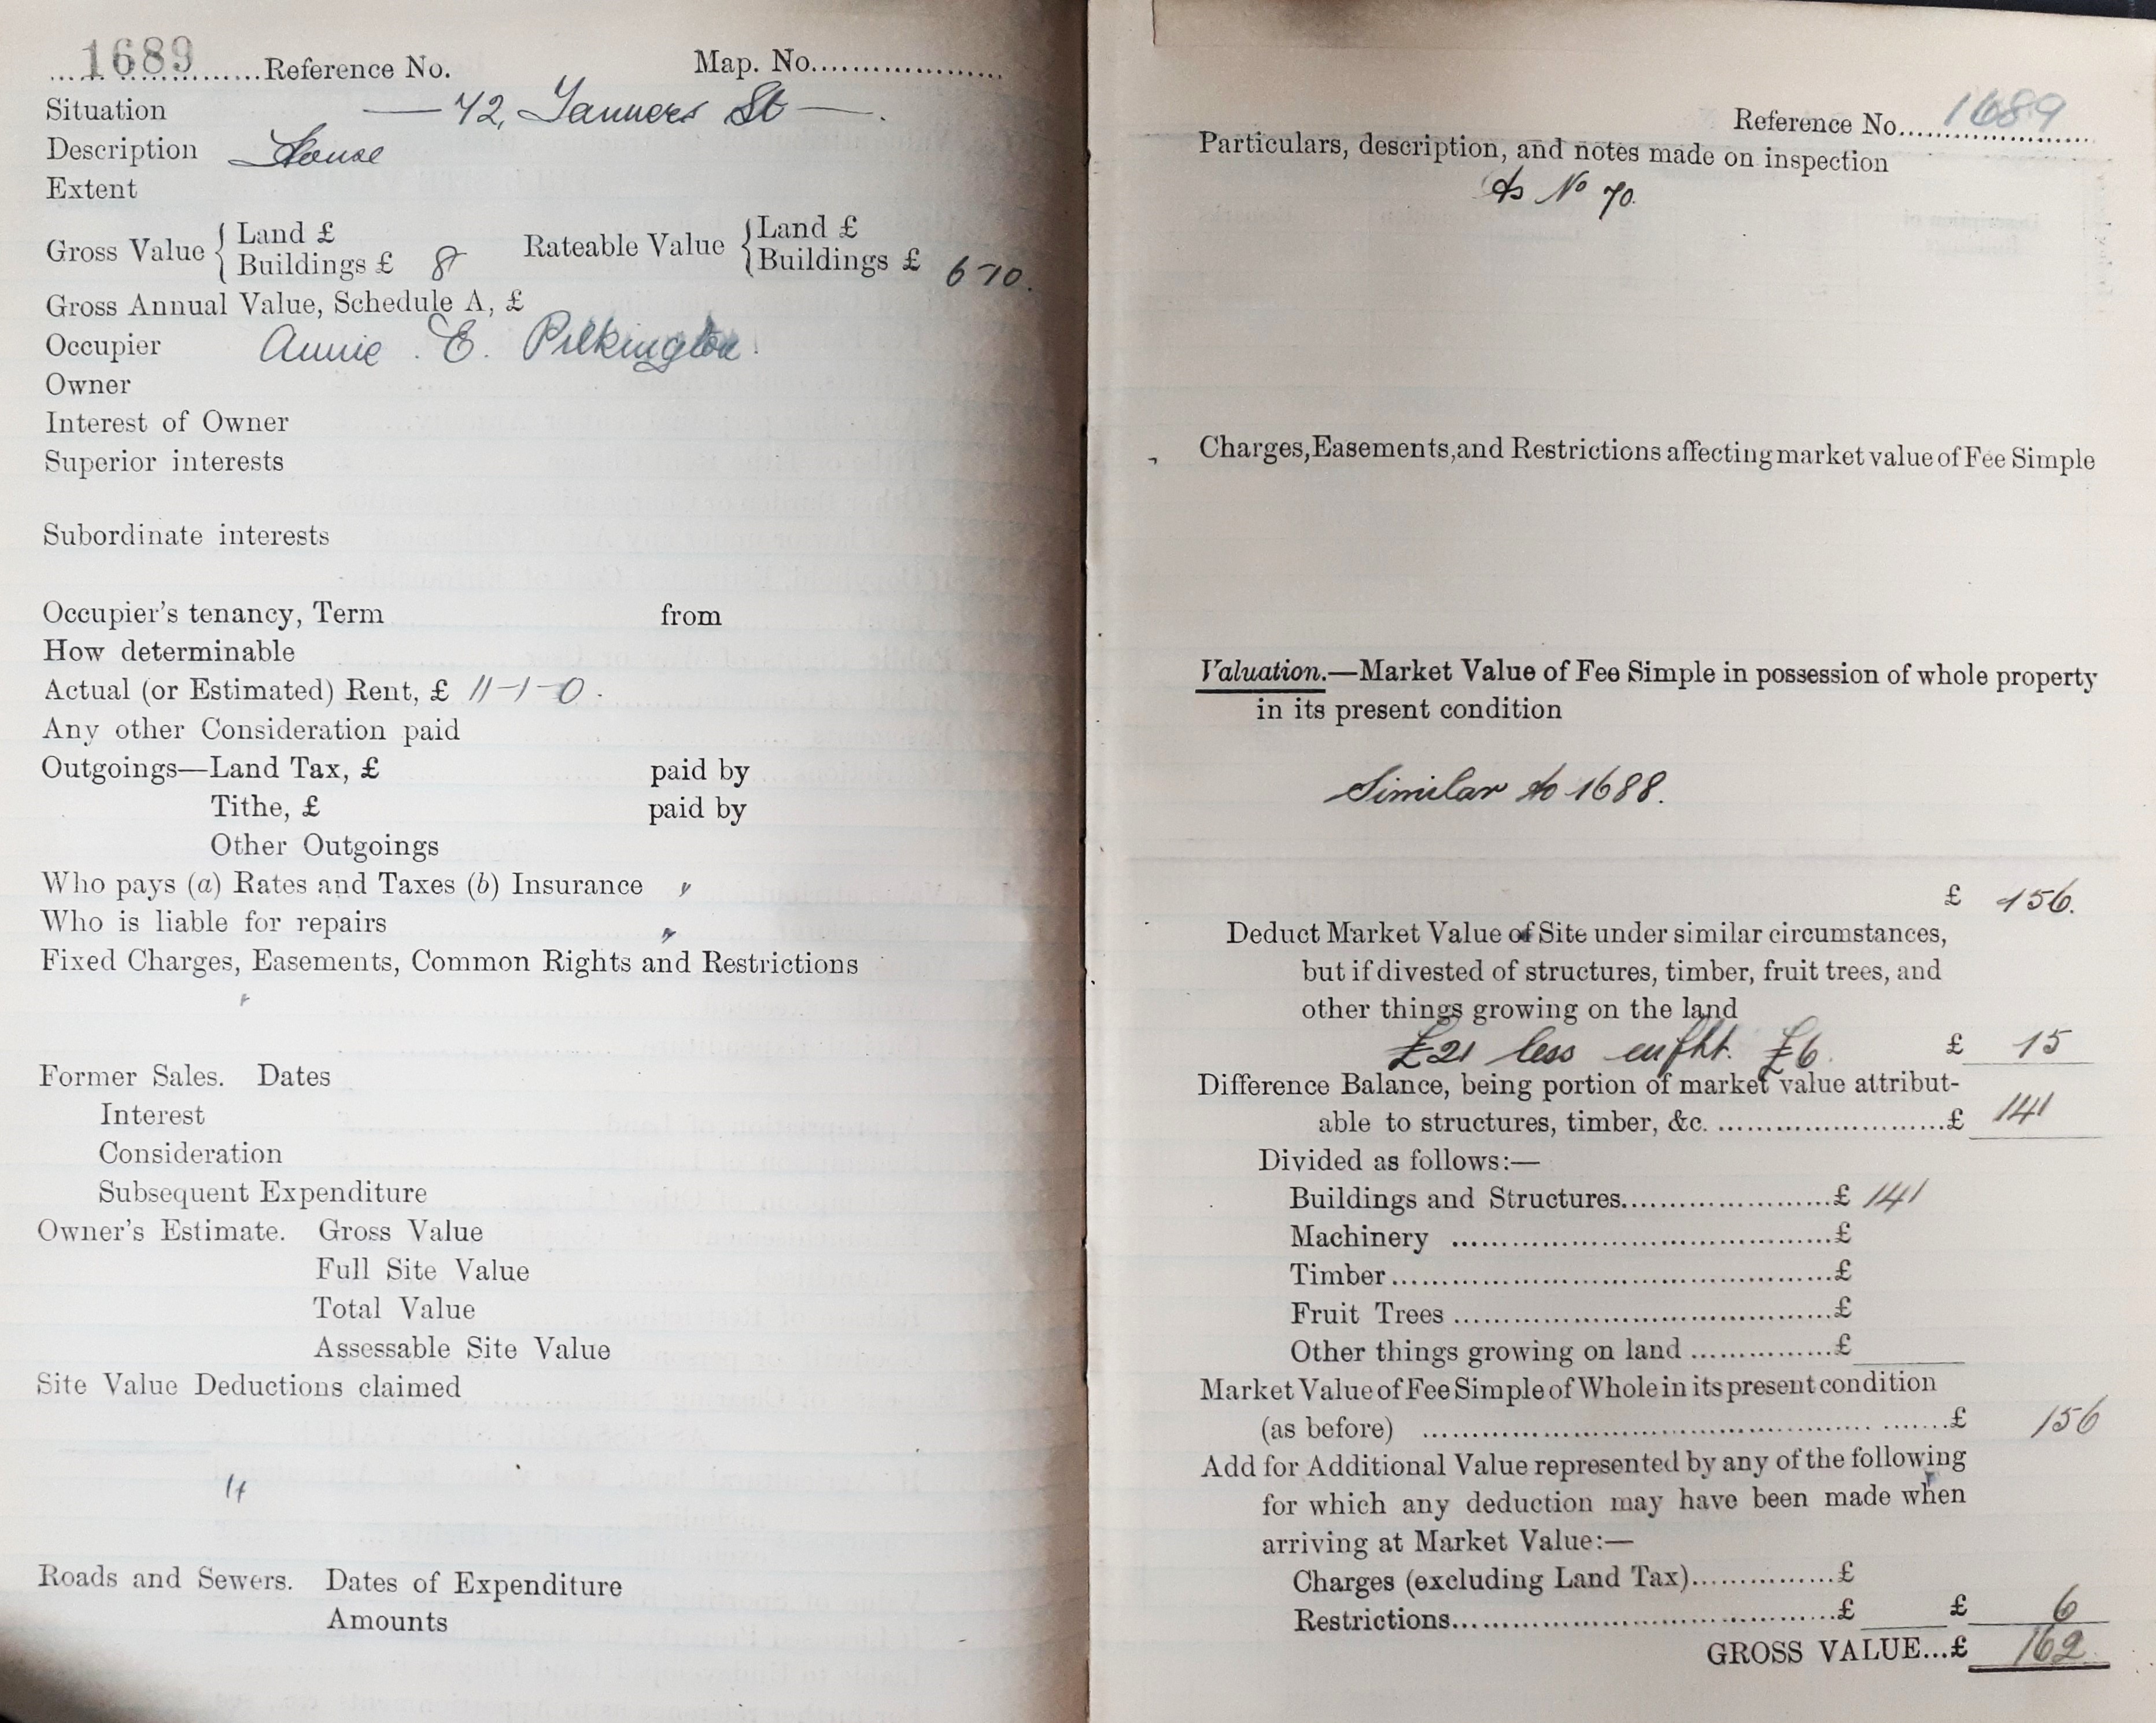 1689 Reference No. Map. No.
Situation — 72, Tanners St —.
Description House
Extent
Gross Value { Land £ Rateable Value { Land £
Buildings £ 8 Buildings £ 6-10.
Gross Annual Value, Schedule A, £
Occupier Annie . E. Pilkington.
Owner
Interest of Owner
Superior interests
Subordinate interests
Occupier's tenancy, Term from
How determinable
Actual (or Estimated) Rent, £ 11-1-0.
Any other Consideration paid
Outgoings—Land Tax, £ paid by
Tithe, £ paid by
Other Outgoings
Who pays (a) Rates and Taxes (b) Insurance
Who is liable for repairs
Fixed Charges, Easements, Common Rights and Restrictions
Former Sales. Dates
Interest
Consideration
Subsequent Expenditure
Owner's Estimate. Gross Value
Full Site Value
Total Value
Assessable Site Value
Site Value Deductions claimed
Roads and Sewers. Dates of Expenditure
Amounts
Reference No. 1689
Particulars, description, and notes made on inspection
As No 70.
Charges, Easements, and Restrictions affecting market value of Fee Simple
Valuation.—Market Value of Fee Simple in possession of whole property
in its present condition
Similar to 1688.
£ 156.
Deduct Market Value of Site under similar circumstances,
but if divested of structures, timber, fruit trees, and
other things growing on the land
£21 less £6. £ 15
Difference Balance, being portion of market value attribut-
able to structures, timber, &c. £ 141
Divided as follows:—
Buildings and Structures £ 141
Machinery £
Timber £
Fruit Trees £
Other things growing on land £
Market Value of Fee Simple of Whole in its present condition
(as before) £ 156
Add for Additional Value represented by any of the following
for which any deduction may have been made when
arriving at Market Value:—
Charges (excluding Land Tax) £
Restrictions £ £ 6
GROSS VALUE...£ 162